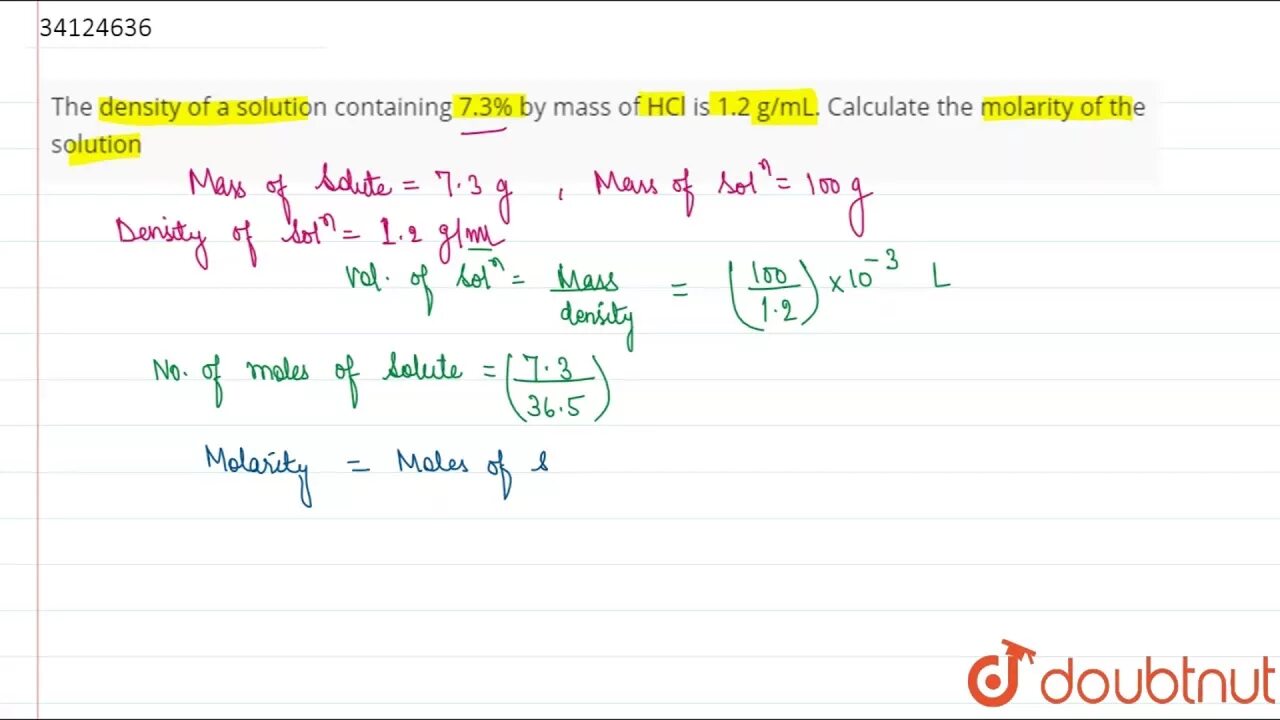 34124636
The density of a solution containing 7.3% by mass of HCl is 1.2 g/mL. Calculate the molarity of the
solution
Mass of Solute = 7.3 g , Mass of Solⁿ = 100 g
Density of Solⁿ = 1.2 g/mL
Vol. of Solⁿ = Mass/density = (100/1.2) × 10⁻³ L
No. of moles of Solute = (7.3/36.5)
Molarity = Moles of s
doubtnut